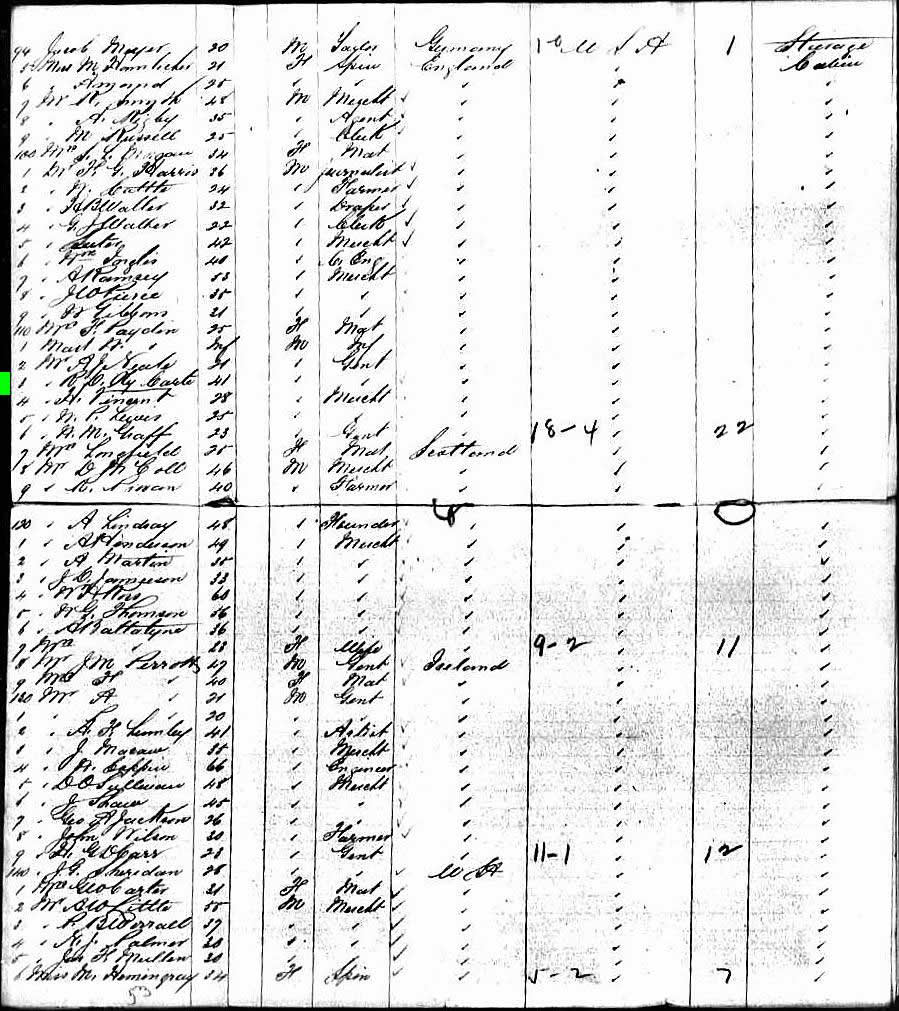 94 Jacob Meyer 20 M Taylor Germany U S A 1 Steerage
5 Miss M 21 F Spin England Cabin
6 " Amand 25 " "
7 Mr R. Smyth 48 M Mercht
8 " A. Rigby 35 " Agent
9 " M Russell 25 " Clerk
100 Mrs 34 F Mat
1 Mr F. G. Harris 36 M Journalist
2 " N. Cattle 24 " Farmer
3 " H B Waller 32 " Draper
4 " G J Walker 22 " Clerk
5 " 42 " Mercht
6 " Wm Inglis 40 " C. Eng
7 " A Ramsey 53 " Mercht
8 " J W Pierce 35 " "
9 " W Gibbons 21 " "
110 Mrs F. Paydin 25 F Mat
1 Mast W. " Inf M Inf
2 Mr A J Neale 21 " Gent
3 " R. D. Oy Carte 41 " "
4 " A. Vincent 28 " Mercht
5 " N. P. Lewis 25 " "
6 " N. M. Graff 23 " Gent 18-4 22
7 Mrs Longfield 35 F Mat Scotland
8 Mr D McColl 46 M Mercht
9 " R. 40 " Farmer
120 " A Lindsay 48 " Founder
1 " A Henderson 49 " Mercht
2 " A Martin 35 " "
3 " J. D. Jamieson 33 " "
4 " W H Ross 60 " "
5 " W G. Thomson 56 " "
6 " A Ballatyne 36 " "
7 Mrs " 23 F Wife 9-2 11
8 Mr J. M Perrott 47 M Gent Ireland
9 Mrs F " 40 F Mat
130 Mr A " 21 M Gent
1 " " 20 "
2 " A. F Lumley 41 " Artist
3 " J. Macaw 35 " Mercht
4 " N. Coppin 66 " Engineer
5 " D O'Sullivan 48 " Mercht
6 " J Shaw 45 " "
7 " Geo A Jackson 26 "
8 " John Wilson 30 " Farmer
9 " H. G D Carr 23 " Gent 11-1 12
140 " J. G. Sheridan 28 " U S A
1 Mrs G W Carter 31 F Mat
2 Mr A W Little 55 M Mercht
3 " P. B Worrall 37 " "
4 " N. J. Palmer 30 " "
5 " Jas F Mullen 30 "
6 Miss M. Hemingray 34 F Spin 5-2 7
53